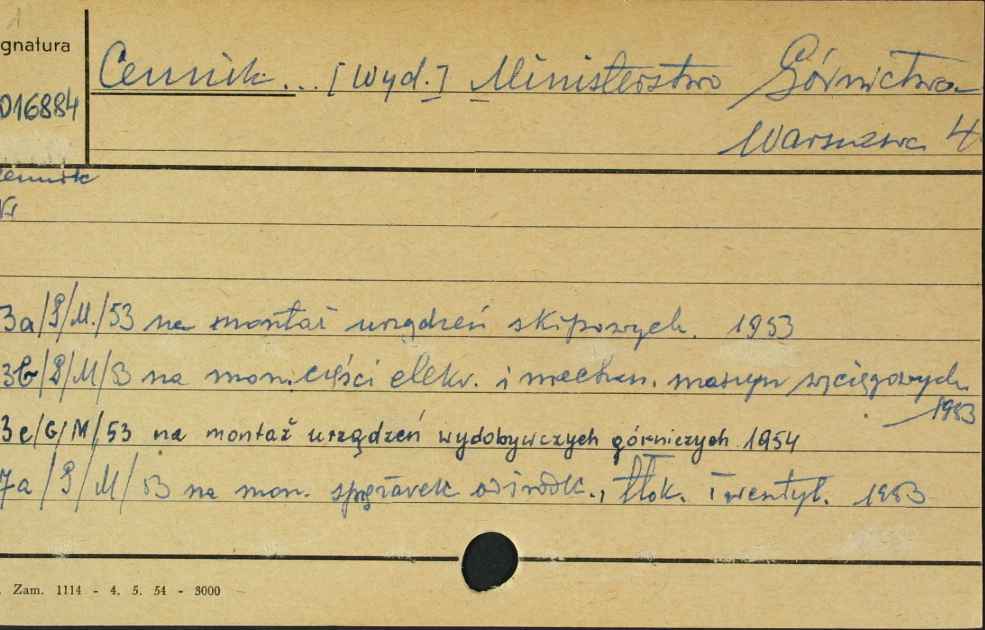 gnatura
Cennik... [Wyd.] Ministerstwo Górnictwa
016884
Warszawa 4
ennik
Nr
3a/G/M./53 na montaż urządzeń skipowych. 1953
3b/G/M/53 na mon. części elekr. i mechan. maszyn wyciągowych
1953
3c/G/M/53 na montaż urządzeń wydobywczych górniczych 1954
7a/G/M/53 na mon. sprężarek odśrodk., tłok. i wentyl. 1953
. Zam. 1114 - 4. 5. 54 - 3000